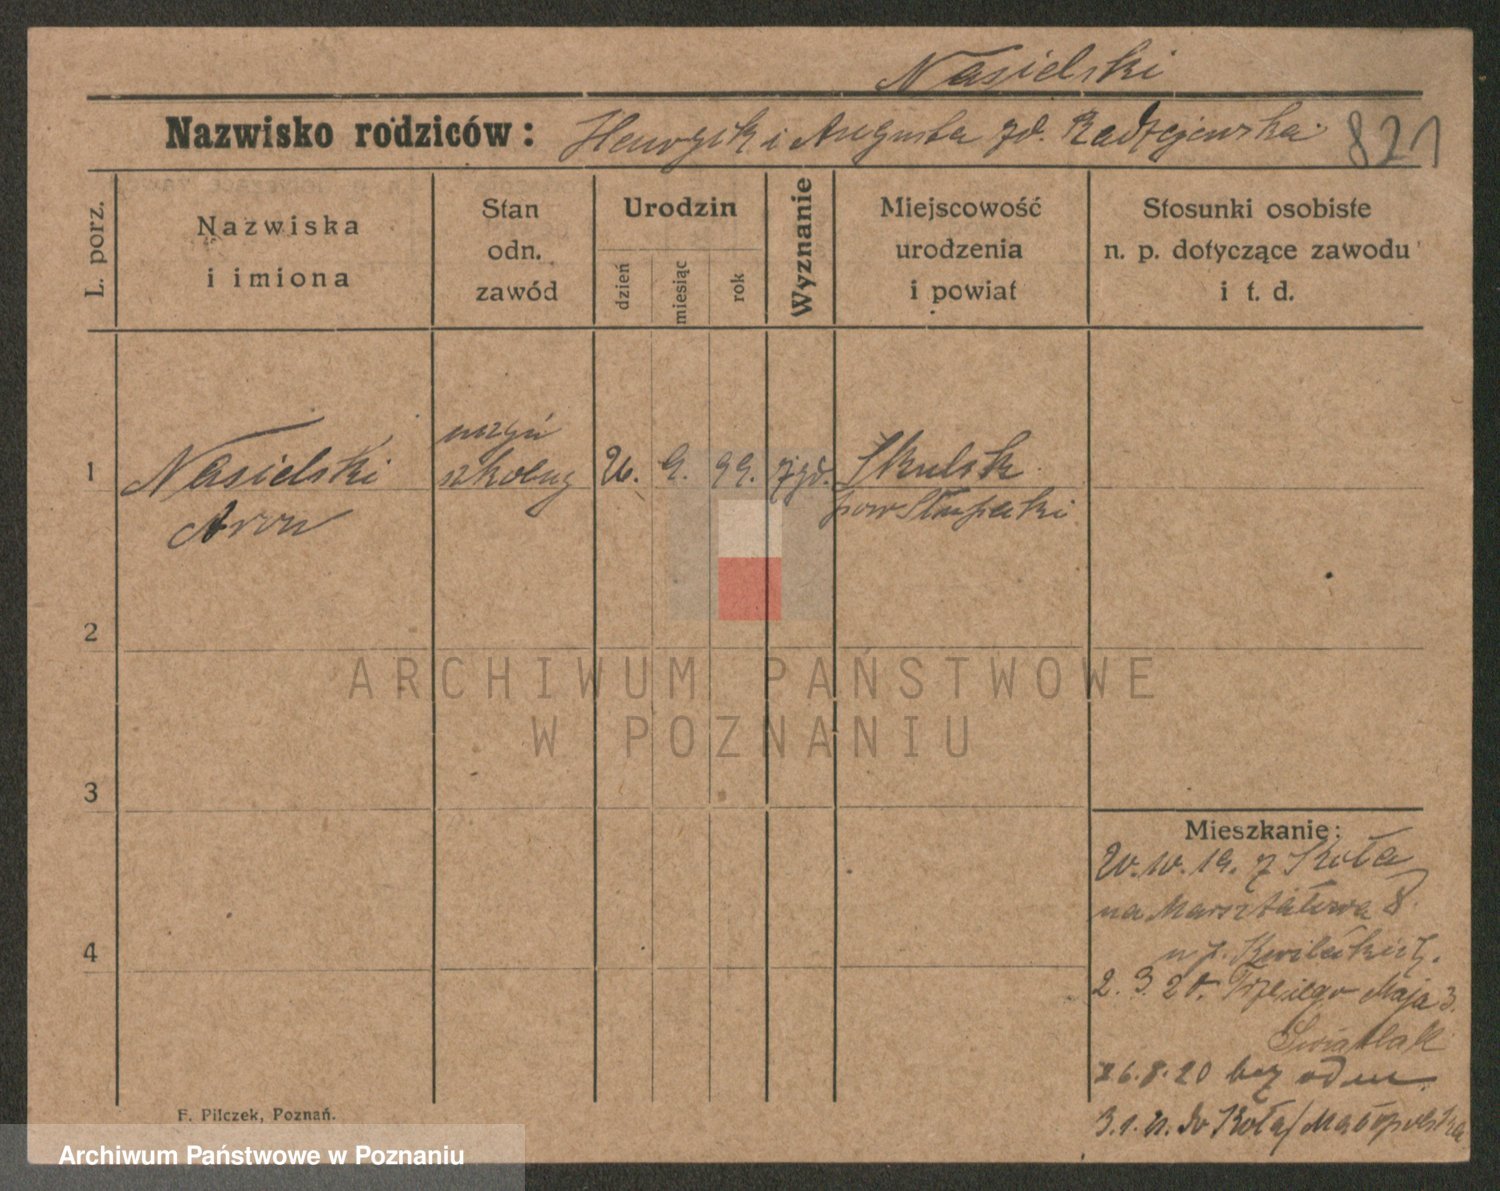 Nasielski
Nazwisko rodziców: Henryk i Augusta zd. Radziejewska 821
L. porz.
Nazwiska
i imiona
Stan
odn.
zawód
Urodzin
dzień
miesiąc
rok
Wyznanie
Miejscowość
urodzenia
i powiat
Stosunki osobiste
n. p. dotyczące zawodu
i t. d.
1
Nasielski
Aron
szkolny
9. 99. żyd.
Skulsk
pow Słupecki
2
3
4
Mieszkanie:
19. z Koła
na Marształowa 8.
Kwileckich.
2. 3. 20. Trzeciego Maja 3.
Światlak
26.8.20 bez odm
3.1.21. do Koła/Małopolska
F. Pilczek, Poznań.
ARCHIWUM PAŃSTWOWE
W POZNANIU
Archiwum Państwowe w Poznaniu